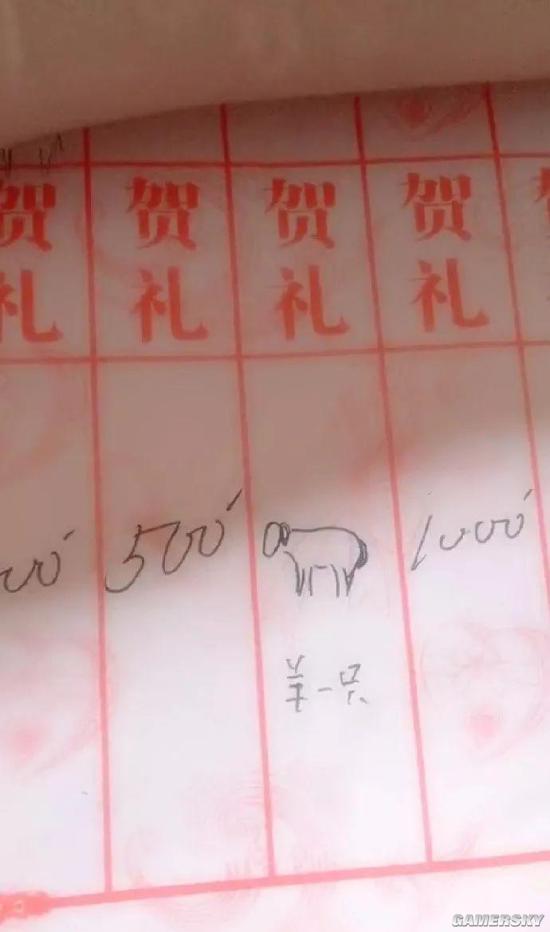 贺礼
贺礼
贺礼
贺礼
500
1000
羊一只
GAMERSKY